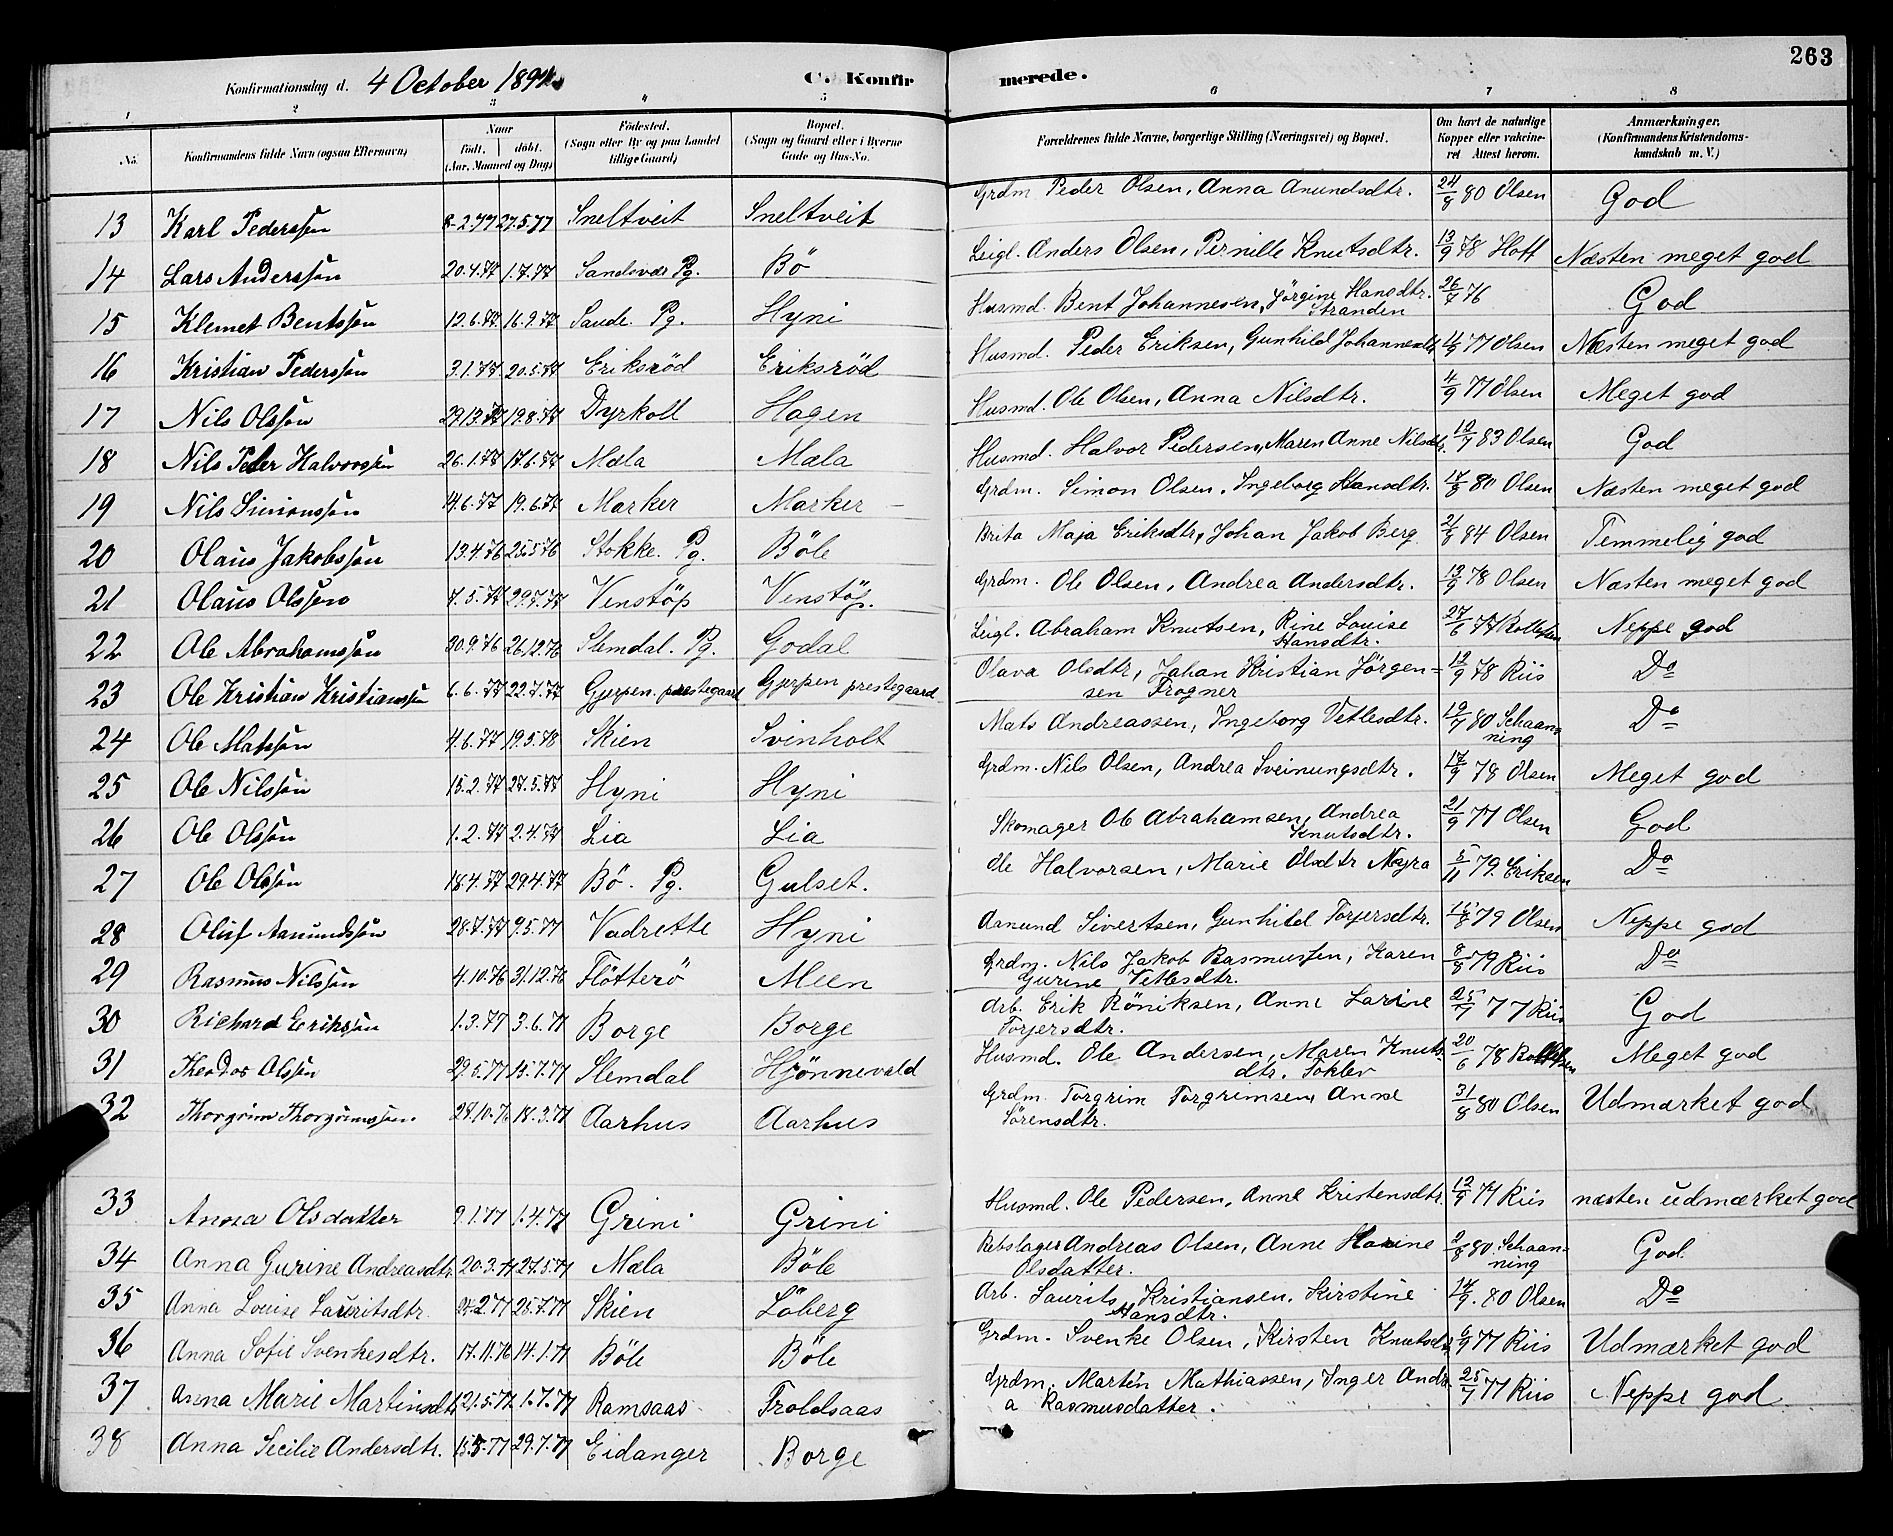 263
Konfirmationsdag d. 4 October 1891. C. Konfir merede.
1 2 3 4 5 6 7 8
No. Konfirmandens fulde Navn (ogsaa Efternavn) Naar født. døbt. (Aar, Maaned og Dag) Fødested. (Sogn eller By og paa Landet tillige Gaard) Bopæl. (Sogn og Gaard eller i Byerne Gade og Hus-No. Forældrenes fulde Navne, borgerlige Stilling (Næringsvei) og Bopæl. Om havt de naturlige Kopper eller vakcineret Attest herom. Anmærkninger. (Konfirmandens Kristendomskundskab m. V.)
13 Karl Pederssøn 8-2.77 27.5.77 Sneltveit Sneltveit Grdm Peder Olsen, Anna Anundsdtr. 24/8 80 Olsen God
14 Lars Anderssøn 20.4.77 1.7.77 Sandsvær Pg. Bö Leigl. Anders Olsen, Pernille Knutsdtr. 13/9 78 Hoff Næsten meget god
15 Klemet Bentssøn 12.6.77 16.9.77 Sande. Pg. Hyni Husmd. Bent Johannesen, Jörgine Hansdtr. Stranden 26/7 76 God
16 Kristian Pederssøn 3.1.77 20.5.77 Eriksröd Eriksröd Husmd. Peder Eriksen, Gunhild Johannesdtr 4/9 77 Olsen Næsten meget god
17 Nils Olssøn 19.8.77 Dyrkoll Hagen Husmd. Ole Olsen, Anna Nilsdtr. 4/9 77 Olsen Meget god
18 Nils Peter Halvorssøn 26.1.77 17.6.77 Mæla Mæla Husmd. Halvor Pedersen, Maren Anne Nilsdtr. 83 Olsen God
19 Nils Simonssøn 14.6.77 19.6.77 Marker Marker Grdm. Simon Olsen, Ingeborg Hansdtr. 17/8 80 Olsen Næsten meget god
20 Olaus Jakobssøn 13.4.76 25.5.76 Stokke. Pg. Böle Brita Maja Eriksdtr, Johan Jakob Berg 21/8 84 Olsen Temmelig god
21 Olaus Olssøn 7.5.77 29.7.77 Venstöp Venstöp. Grdm. Ole Olsen, Andrea Andersdtr. 13/9 78 Olsen Næsten meget god
22 Ole Abrahamssøn 20.9.76 26.12.76 Slemdal. Pg. Godal Leigl. Abraham Knutsen, Rine Louise Hansdtr. 27/6 77 Neppe god
23 Ole Kristian Kristianssøn 6.6.77 22.7.77 Gjerpen. prestegaard Gjerpen prestegaard Olava Olsdtr, Johan Kristian Jörgensen Frogner 78 Riis Do
24 Ole Matssøn 4.6.77 19.5.78 Skien Svinholt Mats Andreassen, Ingeborg Vetlesdtr. 19/7 80 Schaanning Do
25 Ole Nilssøn 15.2.77 27.5.77 Hyni Hyni Grdm. Nils Olsen, Andrea Sveinungsdtr. 17/9 78 Olsen Meget god
26 Ole Olssøn 1.2.77 2.4.77 Lia Lia Skomager Ole Abrahamsen, Andrea Knutsdtr. 21/9 77 Olsen God
27 Ole Olssøn 18.4.77 29.4.77 Bö. Pg. Gulset. Ole Halvorsen, Marie Olsdtr Nyra 5/11 79. Eriksen Do
28 Oluf Aamundssøn 28.7.77 9.5.77 Vadrette Hyni Asmund Sivertsen, Gunhild Torjersdtr. 79 Olsen Neppe god
29 Rasmus Nilssøn 4.10.76 31.12.76 Flötterö Meen Grdm. Nils Jakob Rasmussen, Karen Gurine Vetlesdtr. 8/8 79 Riis Do
30 Richard Erikssøn 1.3.77 3.6.77 Borge Borge Arb. Erik Röniksen, Anne Larine Torjersdtr. 25/7 77 Riis God
31 Theodor Olssøn 29.5.77 15.7.77 Slemdal Hjönnevald Husmd. Ole Andersen, Maren Knutsdtr. Soklev 20/6 78 Meget god
32 Thorgrim Thorgrimssøn. 28.10.76 18.3.77 Aarhus Aarhus Grdm. Torgrim Torgrimsen, Anne Sörensdtr. 31/8 80 Olsen Udmærket god
33 Anna Olsdatter 9.1.77 1.4.77 Grini Grini Husmd. Ole Pedersen, Anne Kristensdtr. 12/9 77 Riis næsten udmærket god
34 Anna Gurine Andreasdtr. 20.3.77 27.5.77 Mæla Böle Rebslager Andreas Olsen, Anne Marine Olsdatter. 2/8 80. Schaanning God
35 Anna Louise Lauritsdtr. 25.7.77 Skien Löberg Arb. Laurits Kristiansen. Kirstine Hansdtr. 14/9. 80 Olsen Do
36 Anna Sofie Svenkesdtr. 17.11.76 14.1.77 Böle Böle Grdm. Svenke Olsen, Kirsten Knutsdtr 6/9 77 Riis Udmærket god
37 Anna Marie Martinsdtr 21.5.77 1.7.77 Ramsaas Troldsaas Grdm. Martin Mathiassen, Inger Andrea Rasmusdatter. 25/7 77 Riis Neppe god
38 Anna Secilie Andersdtr. 15.5.77 29.7.77 Eidanger Borge